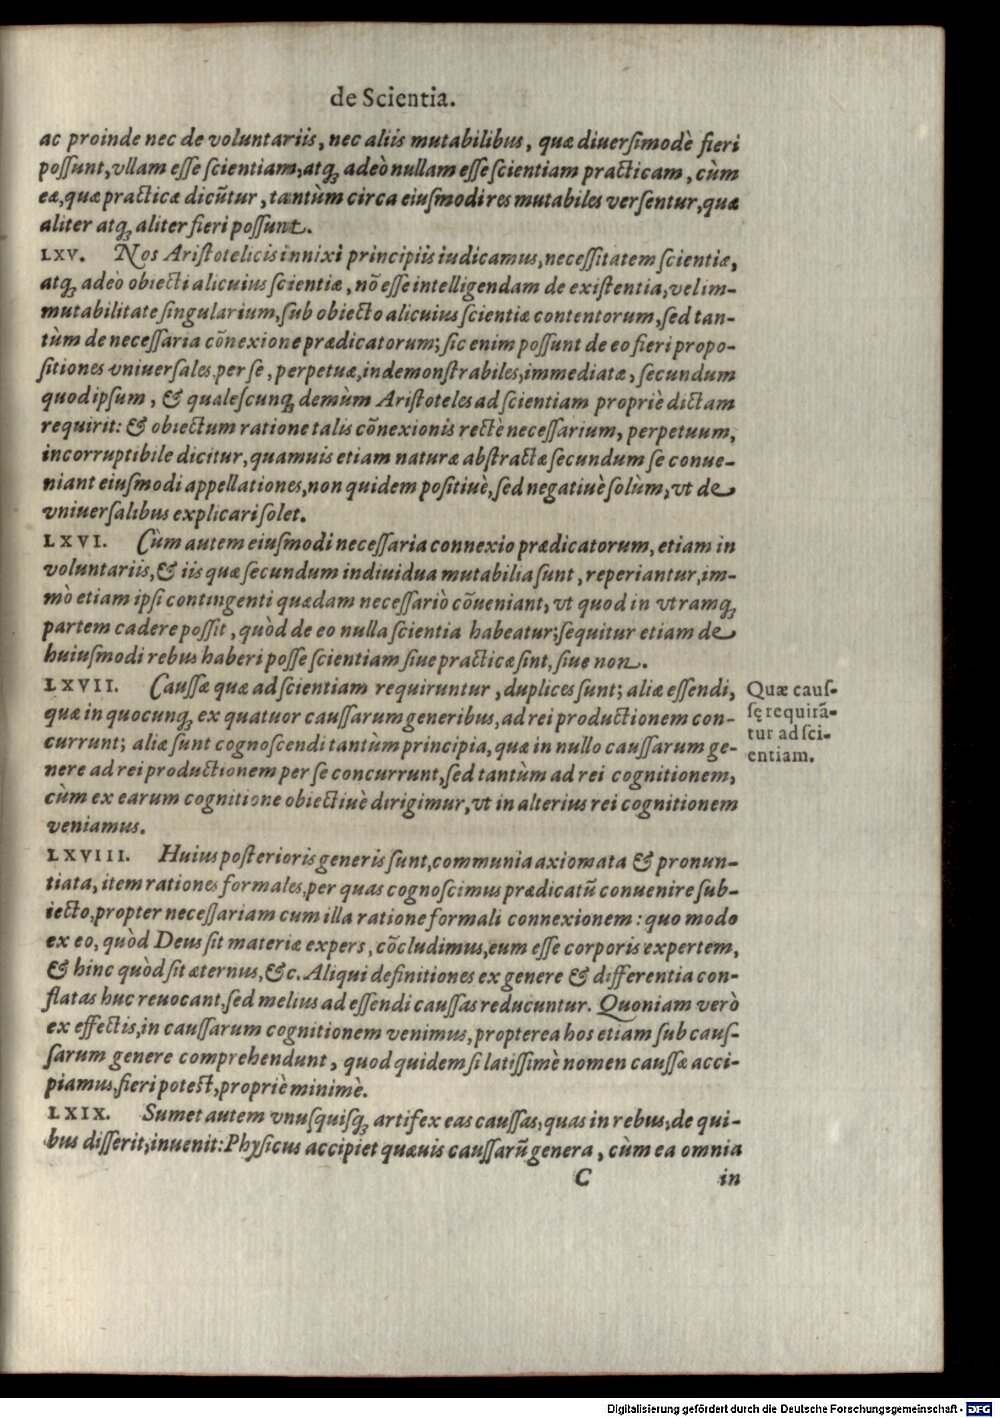 de Scientia.
ac proinde nec de voluntariis, nec aliis mutabilibus, quæ diuersimodè fieri
possunt, vllam esse scientiam, atq; adeò nullam esse scientiam practicam, cùm
eæ, quæ practicæ dicũtur, tantùm circa eiusmodi res mutabiles versentur, quæ
aliter atq; aliter fieri possunt.
LXV. Nos Aristotelicis innixi principiis iudicamus, necessitatem scientiæ,
atq; adeò obiecti alicuius scientiæ, nõ esse intelligendam de existentia, vel im-
mutabilitate singularium, sub obiecto alicuius scientiæ contentorum, sed tan-
tùm de necessaria cõnexione prædicatorum; sic enim possunt de eo fieri propo-
sitiones vniuersales, per se, perpetuæ, indemonstrabiles, immediatæ, secundum
quod ipsum, & qualescunq; demùm Aristoteles ad scientiam propriè dictam
requirit: & obiectum ratione talis cõnexionis rectè necessarium, perpetuum,
incorruptibile dicitur, quamuis etiam naturæ abstractæ secundum se conue-
niant eiusmodi appellationes, non quidem positiuè, sed negatiuè solùm, vt de
vniuersalibus explicari solet.
LXVI. Cùm autem eiusmodi necessaria connexio prædicatorum, etiam in
voluntariis, & iis quæ secundum indiuidua mutabilia sunt, reperiantur, im-
mò etiam ipsi contingenti quædam necessariò cõueniant, vt quod in vtramq;
partem cadere possit, quòd de eo nulla scientia habeatur; sequitur etiam de
huiusmodi rebus haberi posse scientiam siue practicæ sint, siue non.
LXVII. Caussæ quæ ad scientiam requiruntur, duplices sunt; aliæ essendi,
quæ in quocunq; ex quatuor caussarum generibus, ad rei productionem con-
currunt; aliæ sunt cognoscendi tantùm principia, quæ in nullo caussarum ge-
nere ad rei productionem per se concurrunt, sed tantùm ad rei cognitionem,
cùm ex earum cognitione obiectiuè dirigimur, vt in alterius rei cognitionem
veniamus.
Quæ caus-
sę requirã-
tur ad sci-
entiam.
LXVIII. Huius posterioris generis sunt, communia axiomata & pronun-
tiata, item rationes formales, per quas cognoscimus prædicatũ conuenire sub-
iecto, propter necessariam cum illa ratione formali connexionem: quo modo
ex eo, quòd Deus sit materiæ expers, cõcludimus, eum esse corporis expertem,
& hinc quòd sit æternus, &c. Aliqui definitiones ex genere & differentia con-
flatas huc reuocant, sed melius ad essendi caussas reducuntur. Quoniam verò
ex effectis, in caussarum cognitionem venimus, propterea hos etiam sub caus-
sarum genere comprehendunt, quod quidem si latissimè nomen caussæ acci-
piamus, fieri potest, propriè minimè.
LXIX. Sumet autem vnusquisq; artifex eas caussas, quas in rebus, de qui-
bus disserit, inuenit: Physicus accipiet quæuis caussarũ genera, cùm ea omnia
C in
Digitalisierung gefördert durch die Deutsche Forschungsgemeinschaft - DFG